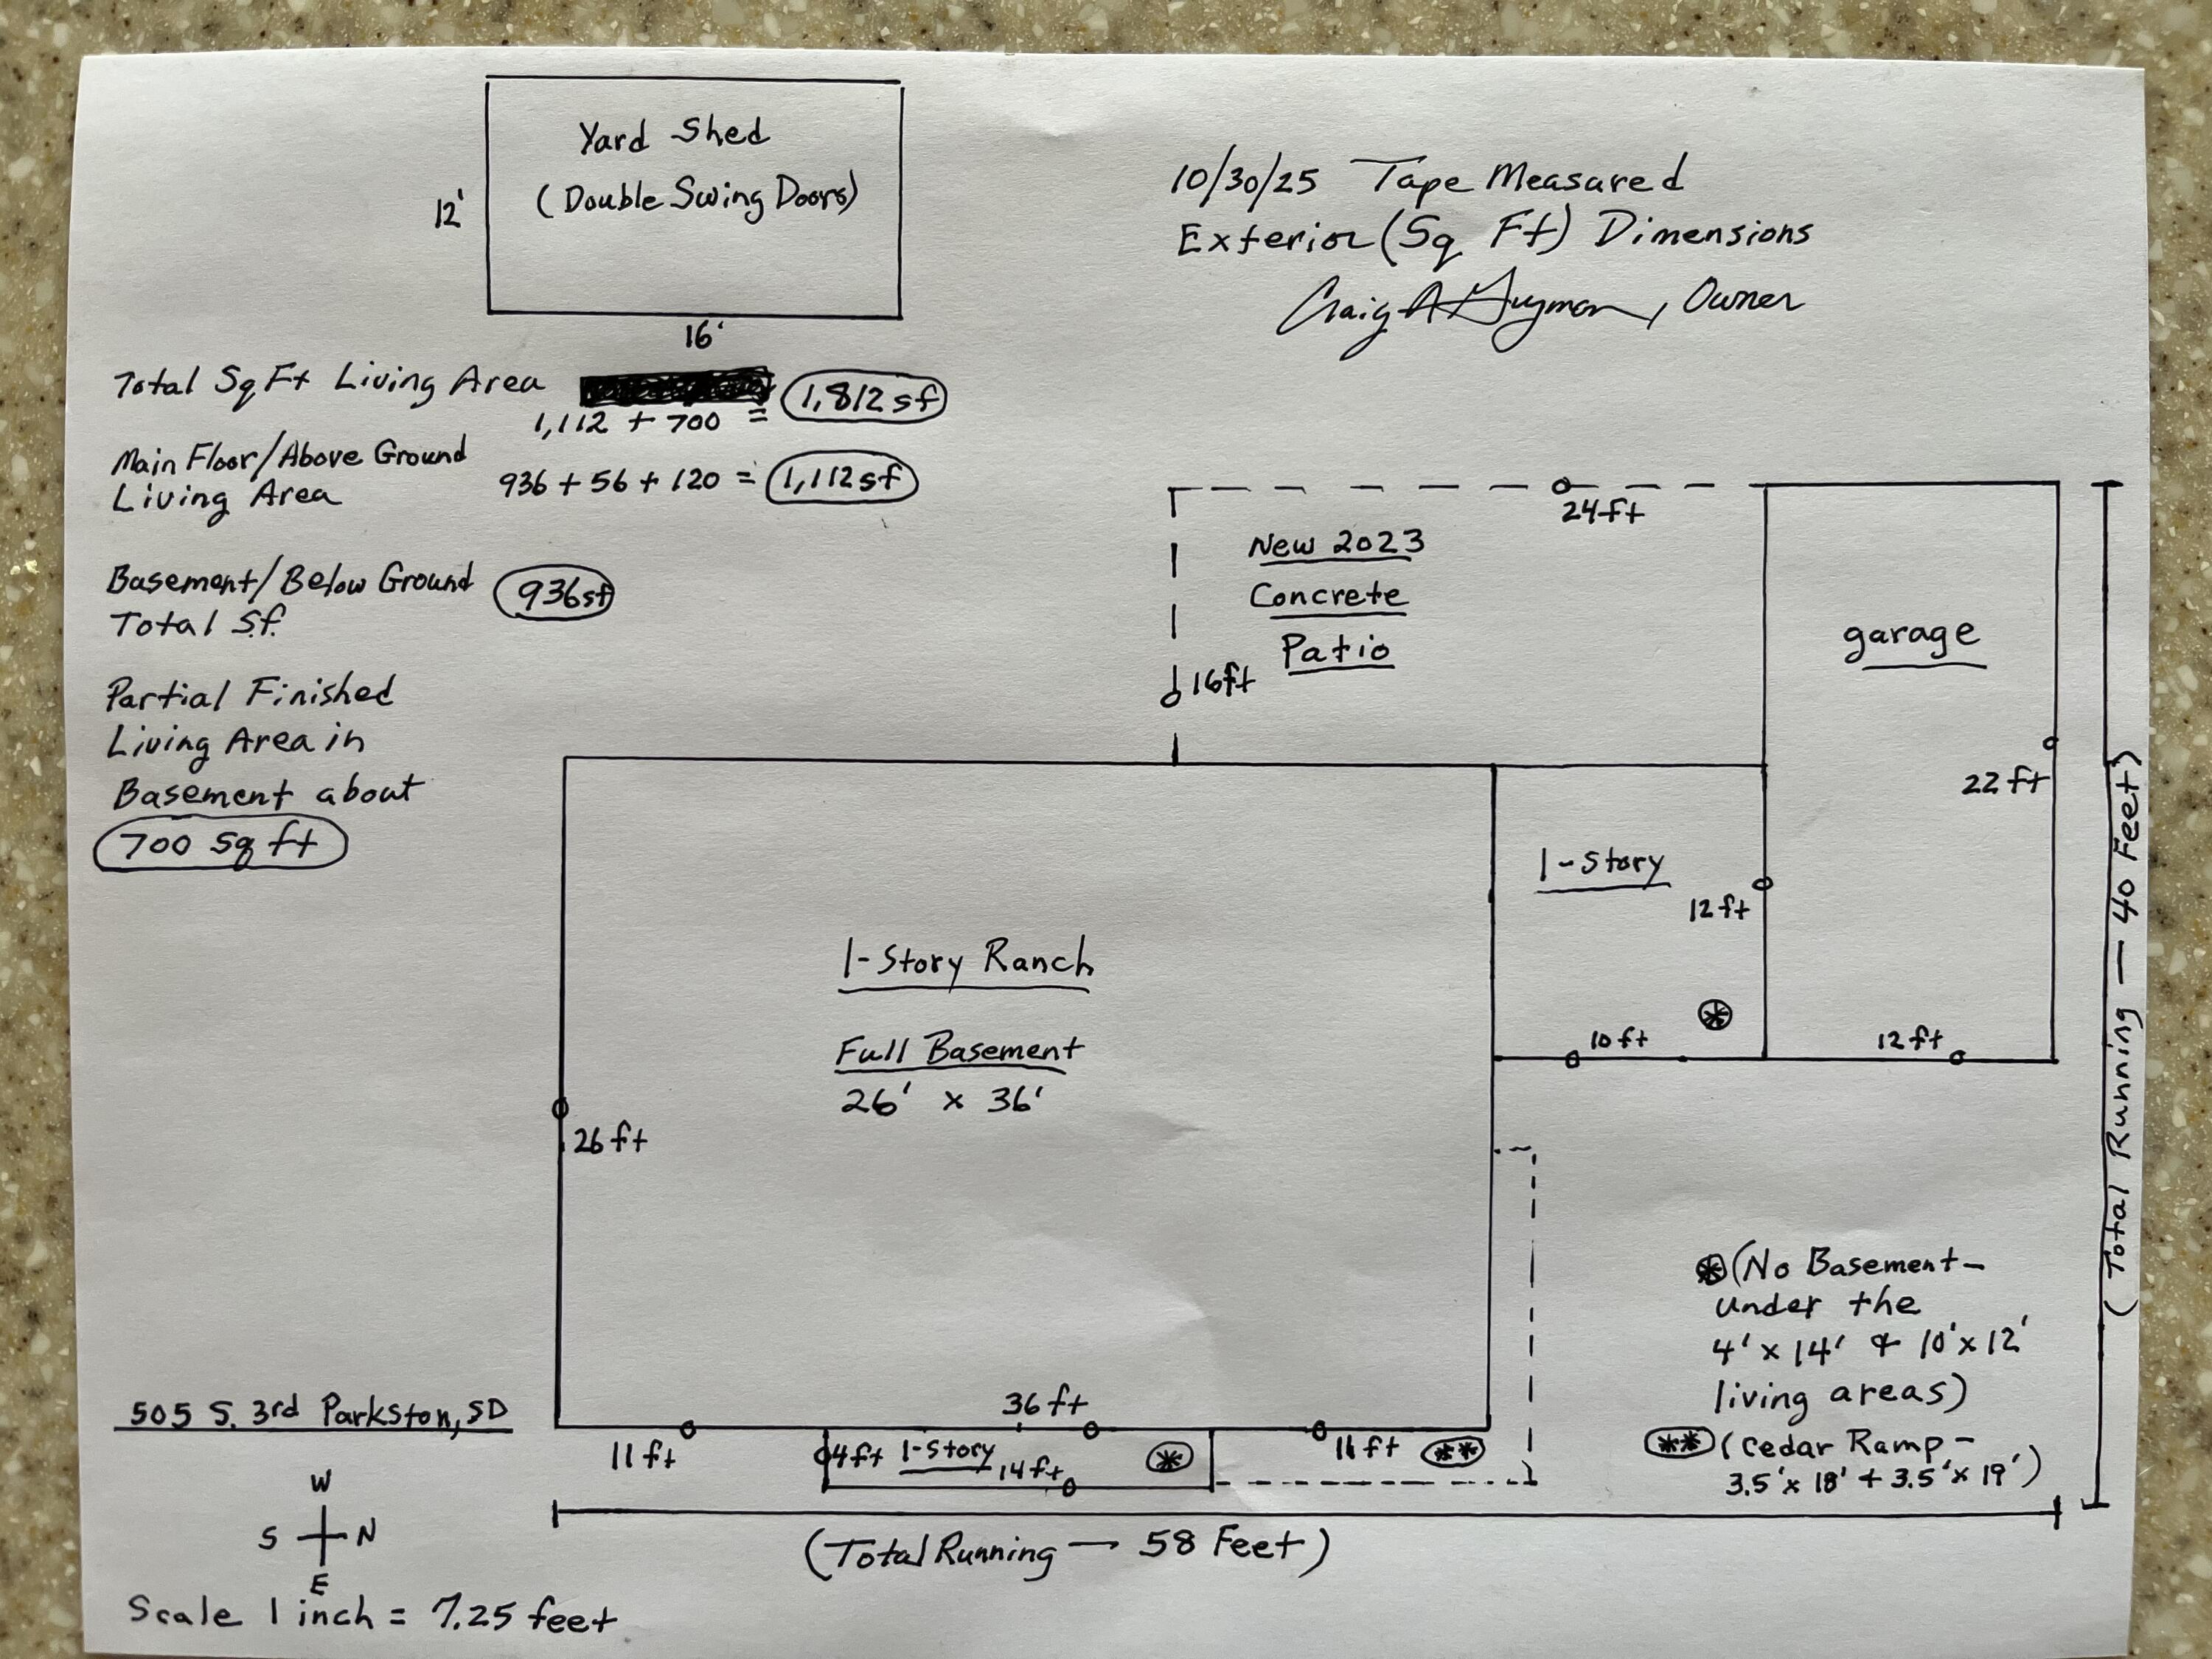 Yard Shed
(Double Swing Doors)
12'
16'
10/30/25 Tape Measured
Exterior (Sq Ft) Dimensions
Craig A Guymon, Owner
Total Sq Ft Living Area
1,112 + 700 = 1,812 sf
Main Floor/Above Ground
Living Area
936 + 56 + 120 = 1,112 sf
Basement/Below Ground
Total S.f.
936 sf
Partial Finished
Living Area in
Basement about
700 sq ft
24 ft
New 2023
Concrete
Patio
16 ft
garage
22 ft
1-Story
12 ft
10 ft
12 ft
1-Story Ranch
Full Basement
26' x 36'
26 ft
36 ft
11 ft
4 ft 1-Story
14 ft
*
11 ft
**
*
(Total Running — 40 Feet)
* (No Basement -
under the
4' x 14' & 10' x 12'
living areas)
** (Cedar Ramp -
3.5' x 18' + 3.5' x 19')
(Total Running — 58 Feet)
505 S. 3rd Parkston, SD
W
S N
E
Scale 1 inch = 7.25 feet